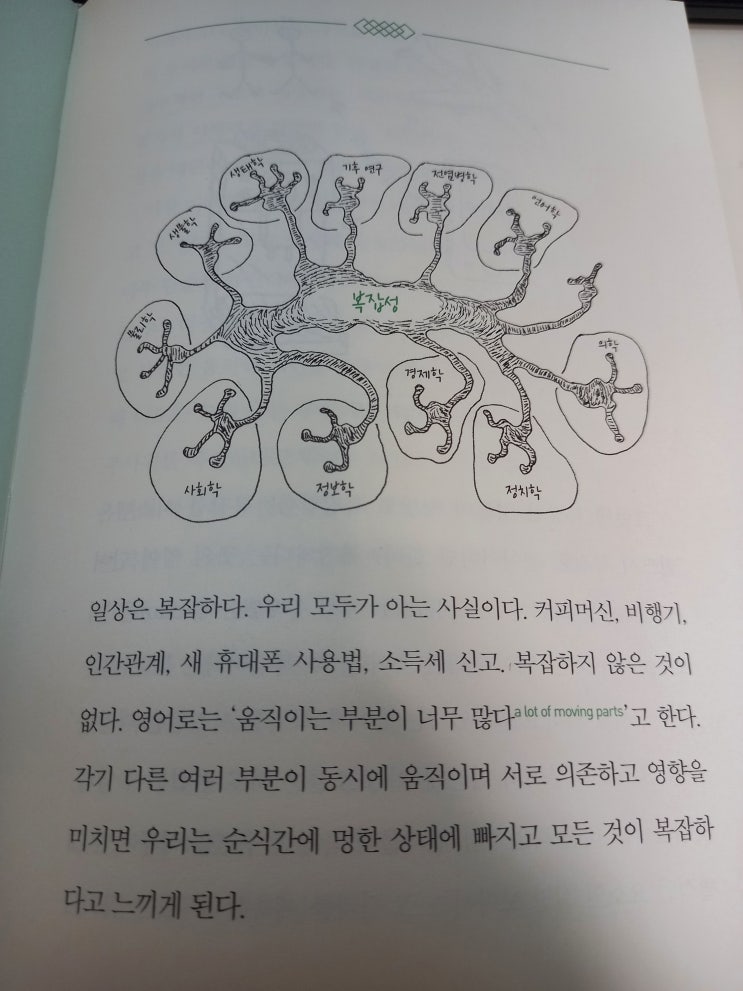 생태학
기후 연구
전염병학
언어학
생물학
복잡성
물리학
의학
경제학
사회학
정보학
정치학
일상은 복잡하다. 우리 모두가 아는 사실이다. 커피머신, 비행기,
인간관계, 새 휴대폰 사용법, 소득세 신고. 복잡하지 않은 것이
없다. 영어로는 ‘움직이는 부분이 너무 많다a lot of moving parts’고 한다.
각기 다른 여러 부분이 동시에 움직이며 서로 의존하고 영향을
미치면 우리는 순식간에 멍한 상태에 빠지고 모든 것이 복잡하
다고 느끼게 된다.